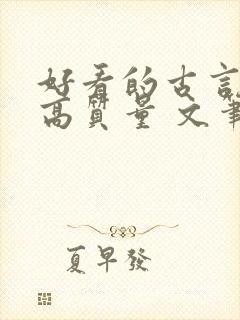 好看的古言
高質量 文筆
夏早發